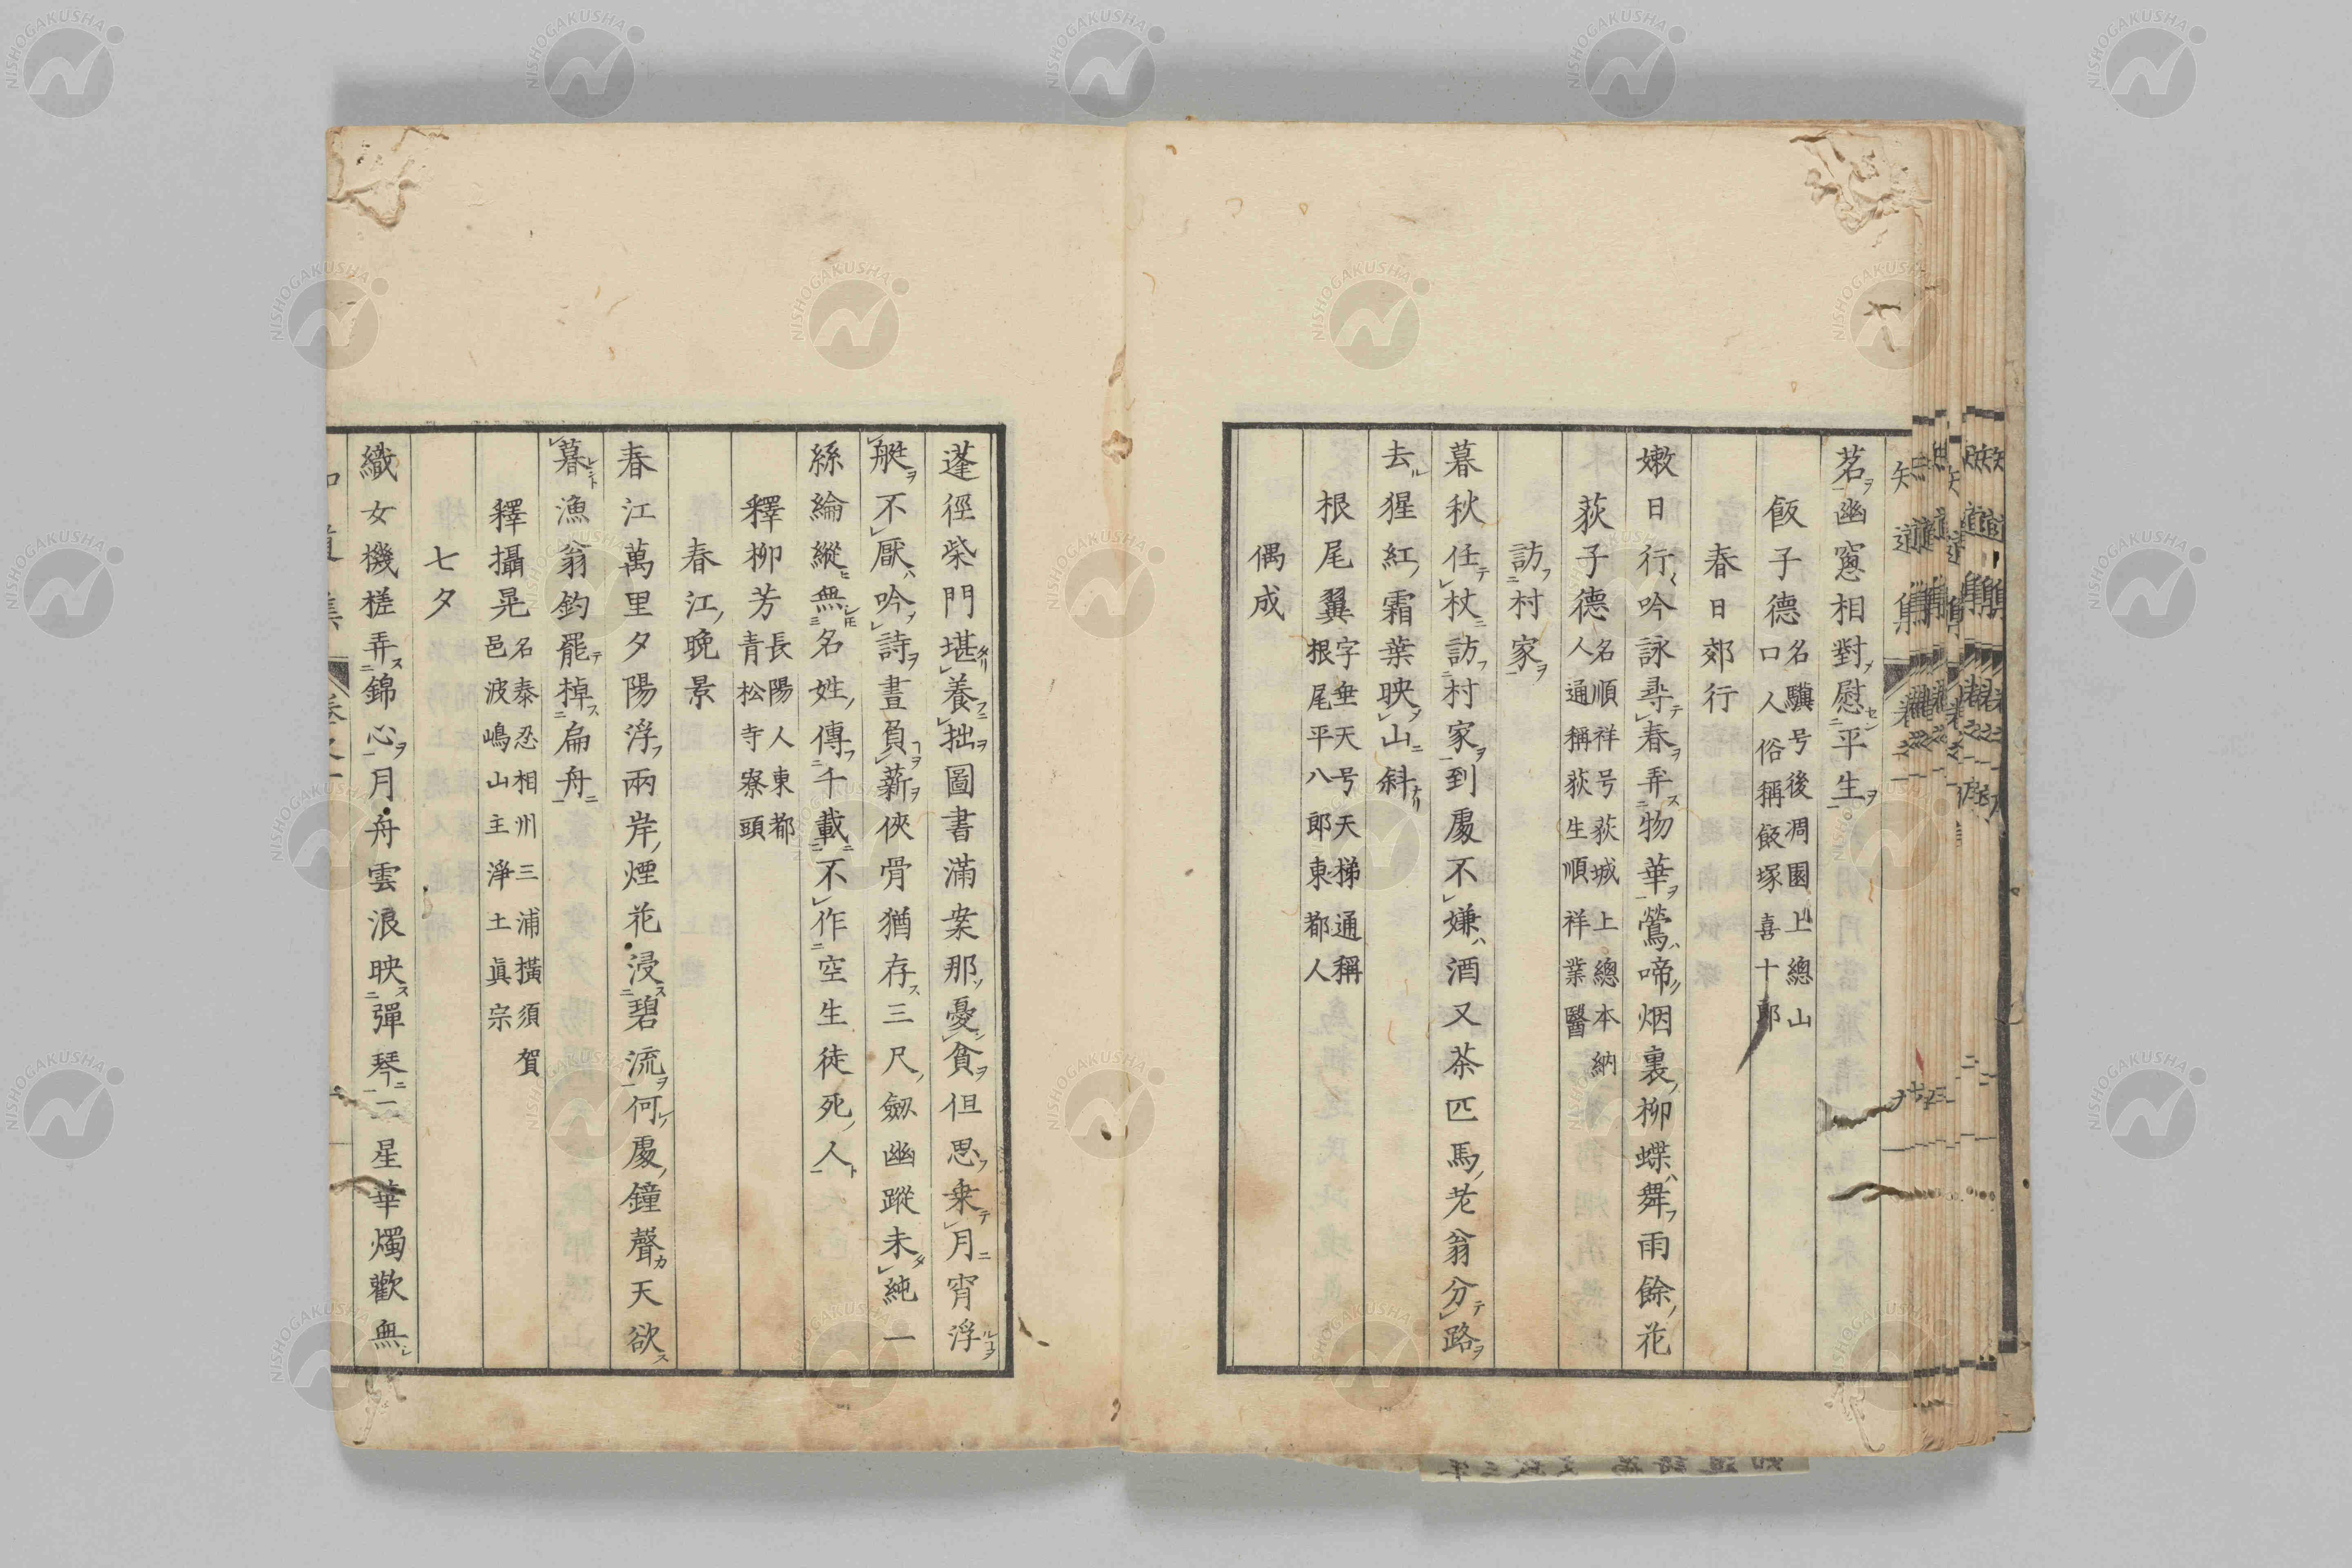 茗幽窻相對慰平生
飯子德名驥号後凋園上總山口人俗稱飯塚喜十郎
春日郊行
嫩日行吟詠尋春弄物華鶯啼烟裏柳蝶舞雨餘花
荻子德名順祥号荻城上總本納人通稱荻生順祥業醫
訪村家
暮秋任杖訪村家到處不嫌酒又茶匹馬老翁分路
去猩紅霜葉映山斜
根尾翼字垂天号天梯通稱根尾平八郎東都人
偶成
蓬徑柴門堪養拙圖書滿案那憂貧但思乘月宵浮
艇不厭吟詩晝負薪俠骨猶存三尺劔幽蹤未純一
絲綸縱無名姓傳千載不作空生徒死人
釋柳芳長陽人東都青松寺寮頭
春江晚景
春江萬里夕陽浮兩岸煙花浸碧流何處鐘聲天欲
暮漁翁釣罷棹扁舟
釋攝晃名泰忍相州三浦横須賀邑波嶋山主淨土眞宗
七夕
織女機槎弄錦心月舟雲浪映彈琴二星華燭歡無
NISHOGAKUSHA